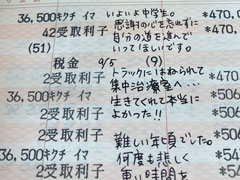 36,500キクチ イマ いよいよ中学生。 *470,0
感謝の心を忘れずに
42受取利子 自分の道を進んで *470
(51) いってほしいです。
税金 9/5 (9) *470
トラックにはねられて
2受取利子 集中治療室へ…
36,500キクチ イマ 生きてくれて本当に *506
2受取利子 よかった!! *506
2受取利子 難しい年頃でした。 *506
36,500キクチ イマ 何度も悲しく
2受取利子